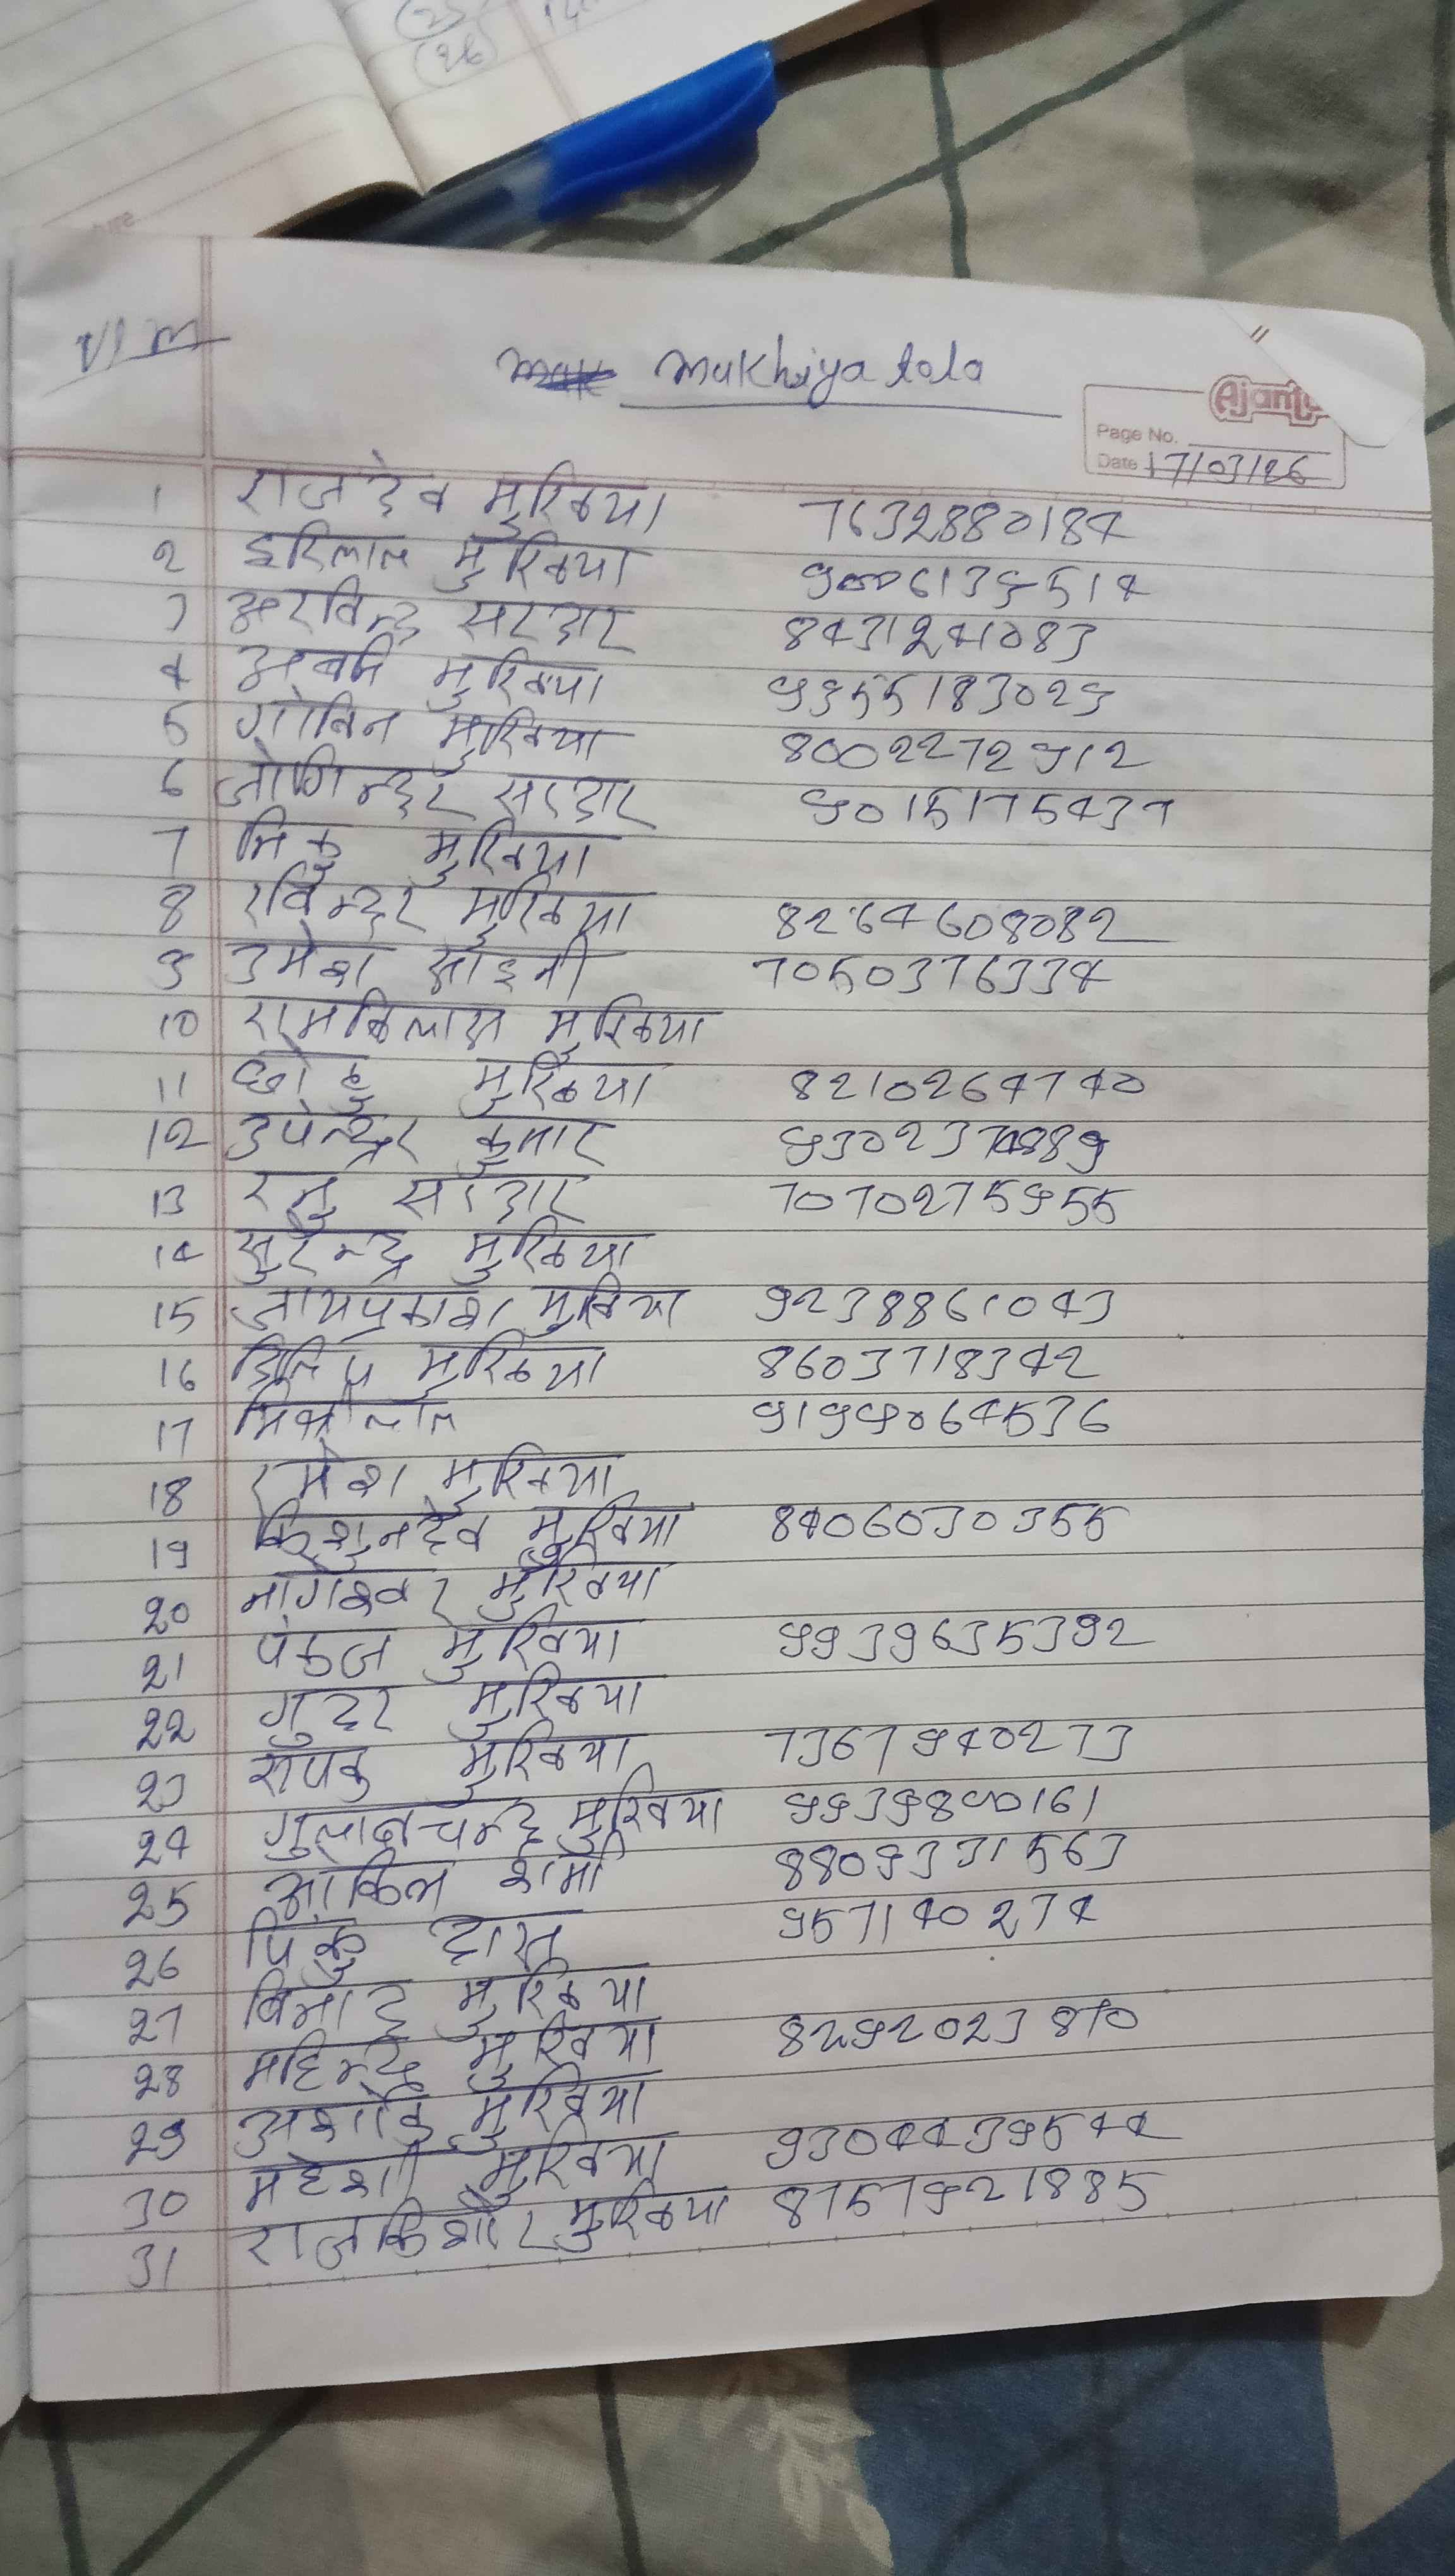 25
26
V/m
Mukhiya tola
Ajanta
Page No.
Date 17/03/26
1 राजदेव मुखिया 7632880184
2 हरिलाल मुखिया 9006139514
3 अरविन्द्र सरदार 8431241083
4 मुखिया 9955183029
5 गोविन मुखिया 8002272912
6 जोगिन्दर सरदार 9015175437
7 मुखिया
8 रविन्दर मुखिया 82646608082
9 उमेश साहनी 7050376334
10 रामविलास मुखिया
11 छोटु मुखिया 8210264740
12 उपेन्द्रर कुमार
13 रामु सरदार 7070275955
14 सुरेन्द्र मुखिया
15 जायप्रकाश मुखिया 9238861043
16 दिलिप मुखिया 8603718342
17 मिश्रीलाल 9199064536
18 रमेश मुखिया
19 किशुनदेव मुखिया 8406030355
20 नागेश्वर मुखिया
21 पंकज मुखिया 9939635392
22 गुदर मुखिया
23 मुखिया 7367940273
24 गुलाबचन्द्र मुखिया 9939800161
25 शर्मा 8809331563
26 पिंकु दास 957140274
27 मुखिया
28 महिन्द्र मुखिया
29 अशोक मुखिया
30 महेशी मुखिया 9304439544
31 राजकिशोर मुखिया 8757921885